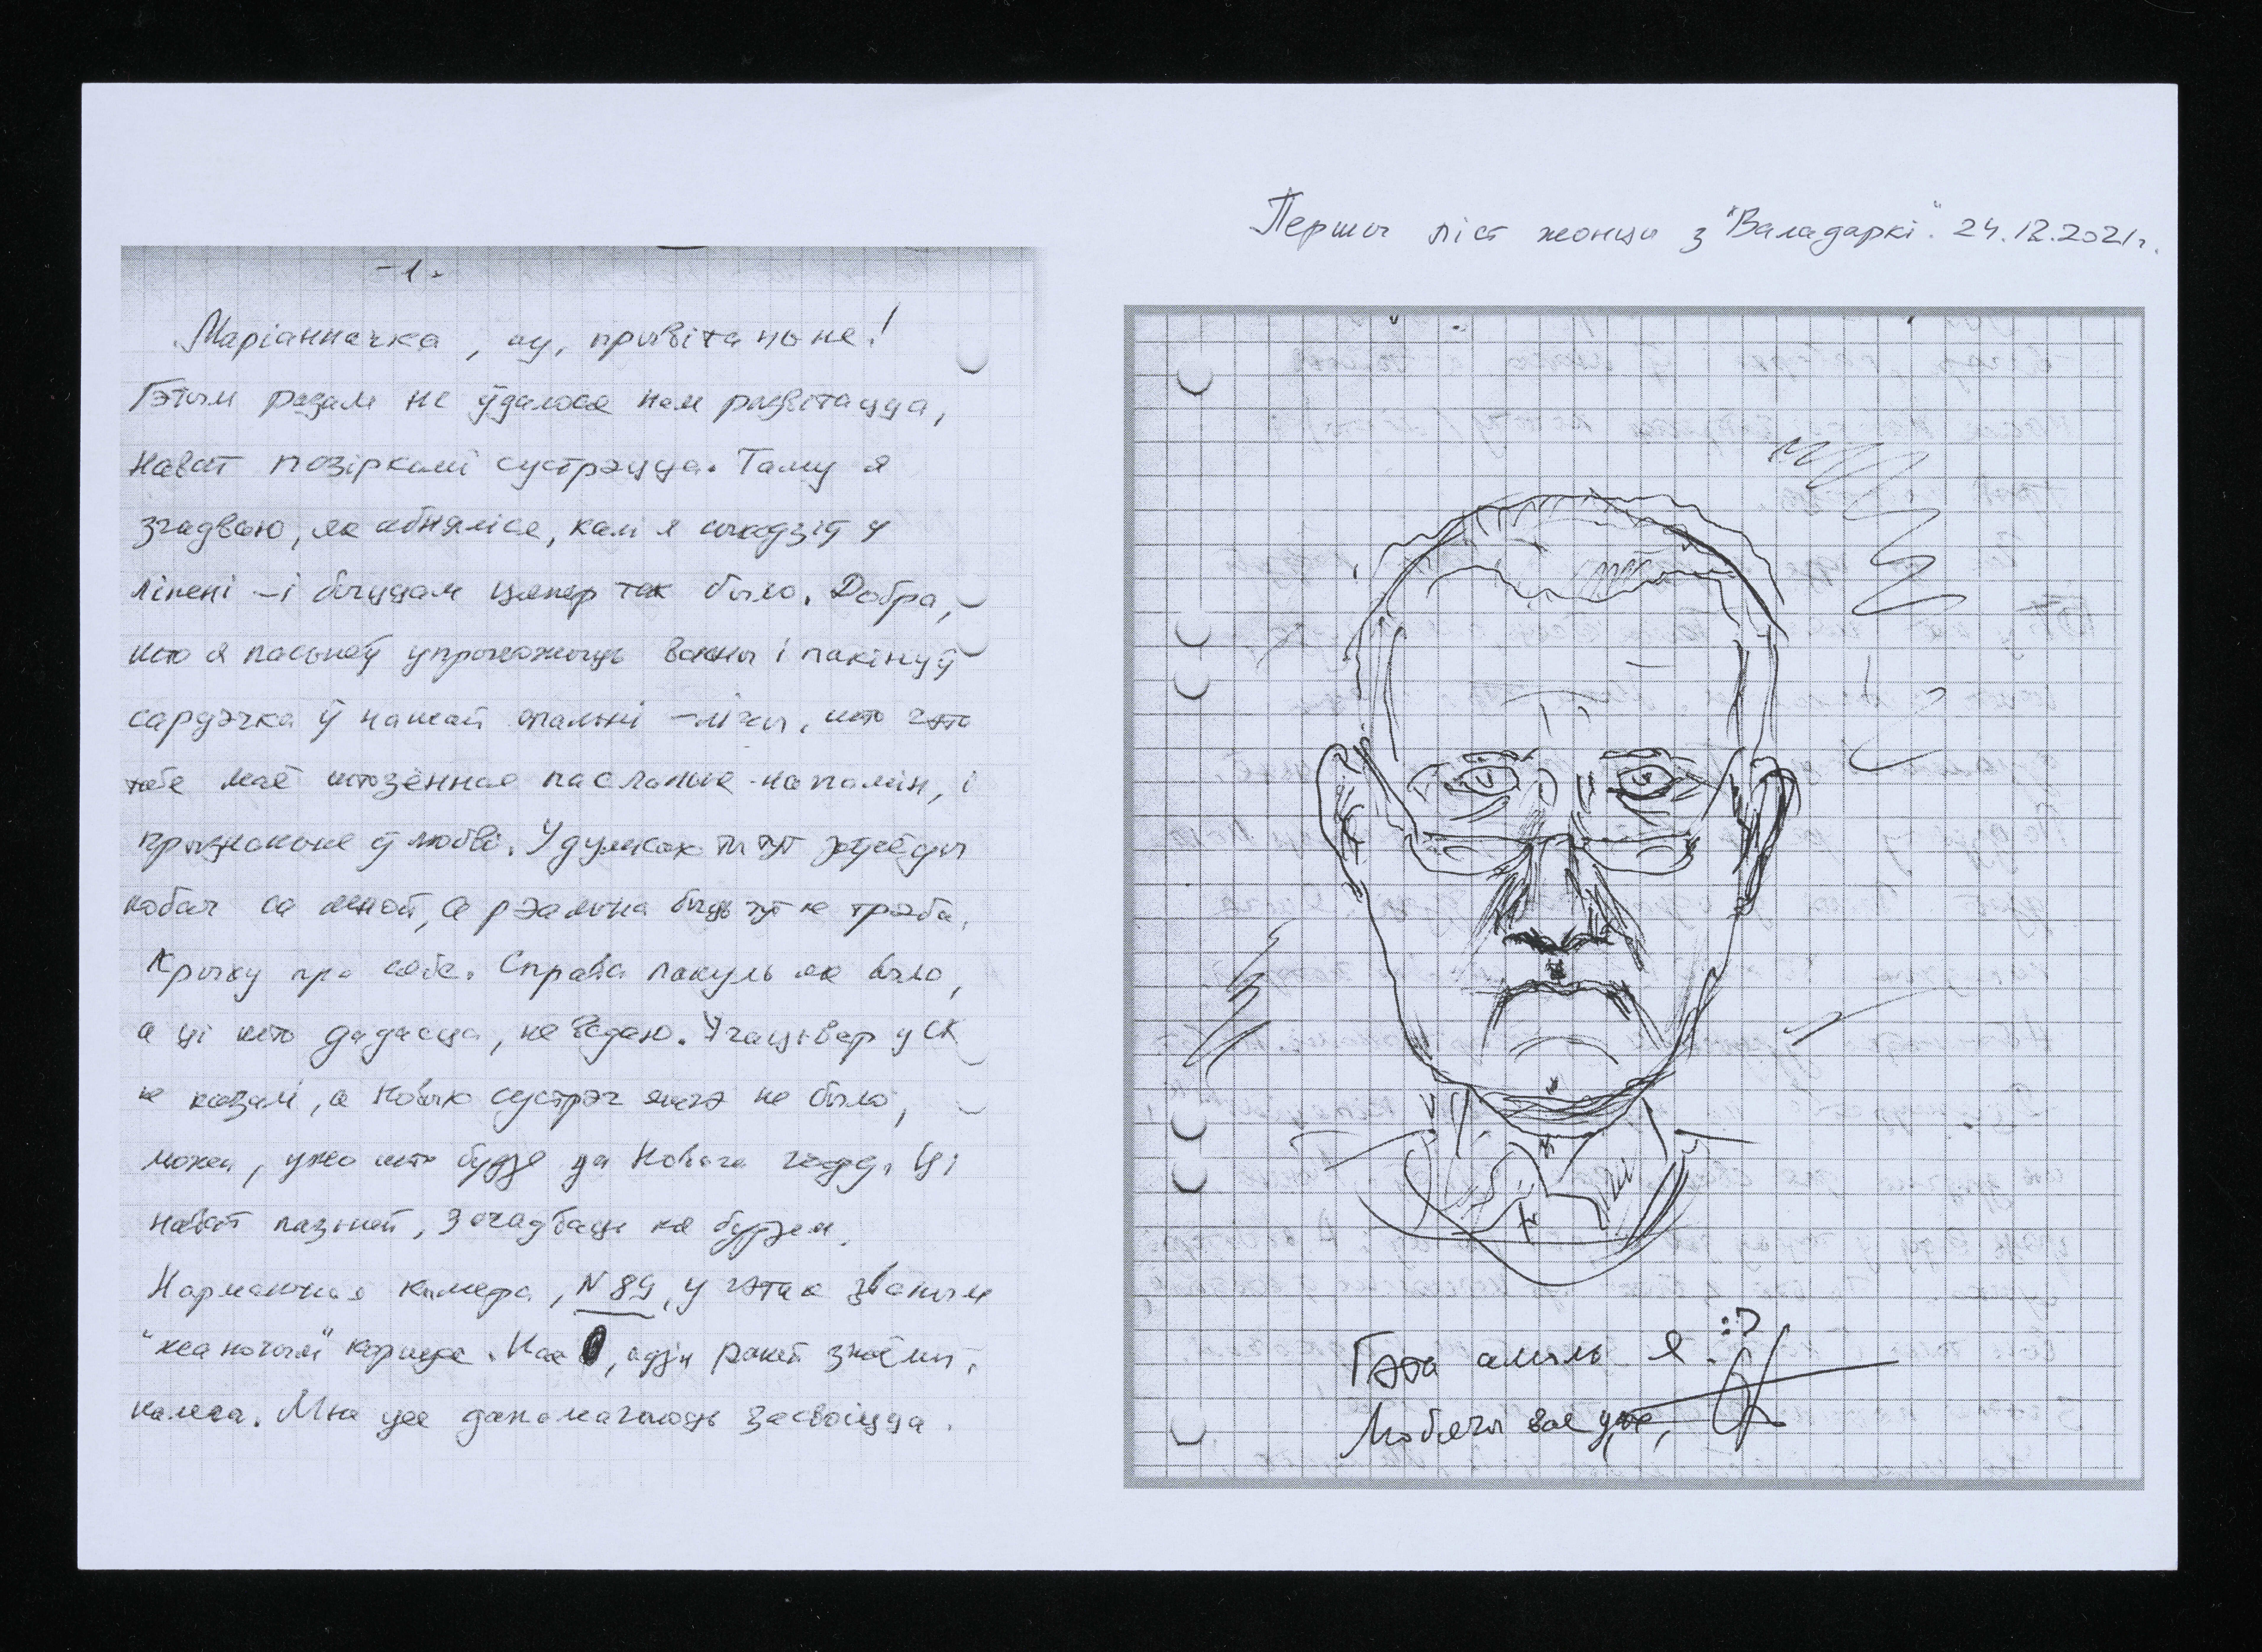 Першы ліст жонцы з "Валадаркі". 24.12.2021г.
-1-
Маріанначка, ау, прывітаньне!
Гэтым разам не ўдалося нам развітацца,
нават позіркамі сустрэцца. Таму я
згадваю, як абняліся, калі я сыходзіў у
ліпені – і быццам цяпер так было. Добра,
што я пасьпеў упрыгожыць вокны і пакінуў
сардэчка ў нашай спальні – лічы, што гэта
табе маё штодзённае пасланьне-напамін, і
прызнаньне ў любові. У думках ты тут заўсёды
побач са мной, а рэальна быць тут не трэба.
Крыху пра сябе. Справа пакуль як была,
а ці што дадасца, не ведаю. У чацьвер у СК
не казалі, а новых сустрэч яшчэ не было,
можа, ужо што будзе да Новага году. Ці
нават пазьней, загадваць не будзем.
Нармальная камера, N 89, у гэтак званым
корпусе. Нас, адзін ранейшы знаёмы,
калега. Мне усе дапамагаюць засвоіцца.
Гэта амаль я. :)
Любячы вас ужо,